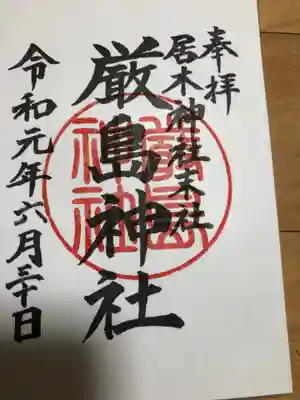 奉拝
居木神社末社
厳島神社
令和元年六月三十日
嚴島
神社